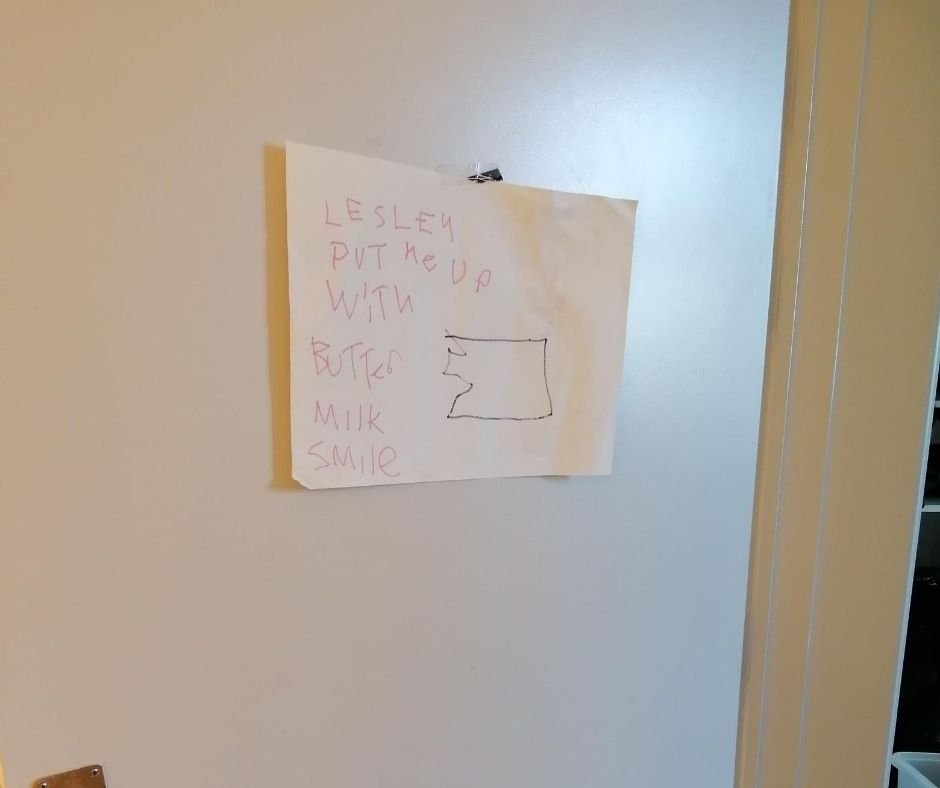 LESLEY
PUT me UP
WITH
BUTTER
MilK
SMile